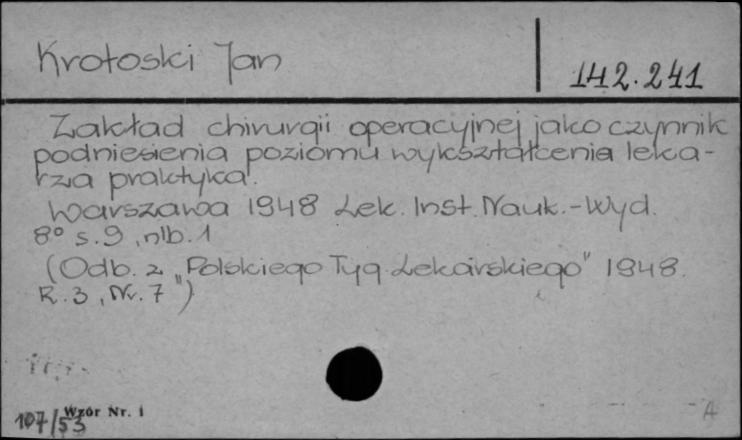 Krotoski Jan
142.241
Zakład chirurgii operacyjnej jako czynnik
podniesienia poziomu wykształcenia leka-
rza praktyka.
Warszawa 1948 Lek. Inst. Nauk.-Wyd.
8° s. 9, nlb. 1
(Odb. z „Polskiego Tyg. Lekarskiego" 1948.
R. 3, Nr. 7")
Wzór Nr. 1
107/53
A